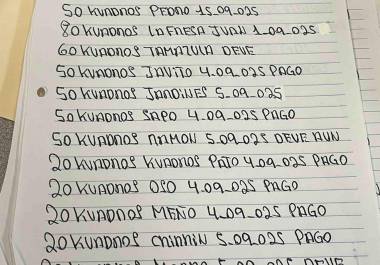 50 KUADROS PEDRO 15.09.025
80 KUADROS LA FRESA JUAN 1.09.025
60 KUADROS TAMATULA DEVE
50 KUADROS JAVITO 4.09.025 PAGO
50 KUADROS JARDINES 5.09.025
50 KUADROS SAPO 4.09.025 PAGO
50 KUADROS RAMON 5.09.025 DEVE AUN
20 KUADROS KUADROS PATO 4.09.025 PAGO
20 KUADROS OSO 4.09.025 PAGO
20 KUADROS MEÑO 4.09.025 PAGO
20 KUADROS CHINHIN 5.09.025 PAGO